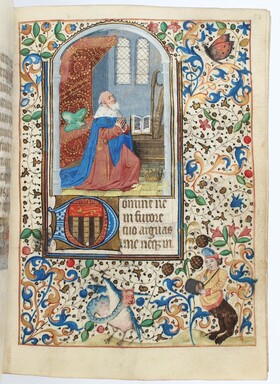 Domine ne
in furore
tuo arguas
me neq3 in